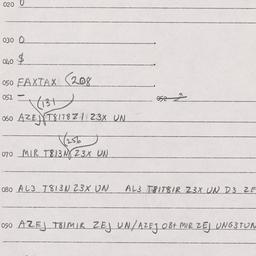 020 0
030 0
040 $
050 FAXTAX (208
051 –
052 – 2
(131
060 AZEJ T81T8Z1 Z3X UN
(256
070 MIR T813N Z3X UN
080 AL3 T813N Z3X UN AL3 T81T81R Z3X UN D3 ZF
090 AZEJ T81MIR ZEJ UN/AZEJ 08+ MIR ZEJ UNG3TUN